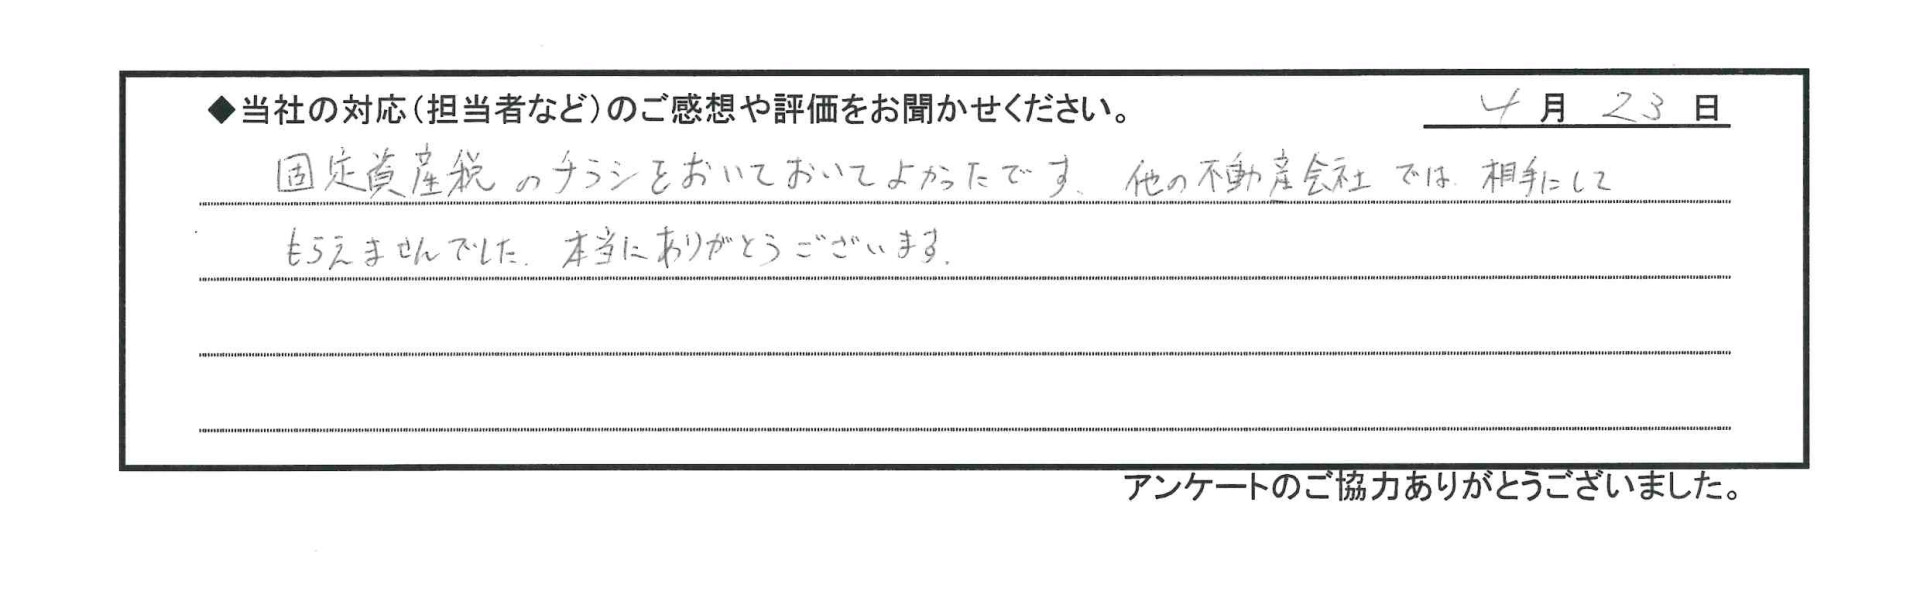 ◆当社の対応(担当者など)のご感想や評価をお聞かせください。 4月23日
固定資産税のチラシをおいておいてよかったです。他の不動産会社では相手にして
もらえませんでした。本当にありがとうございます。
アンケートのご協力ありがとうございました。